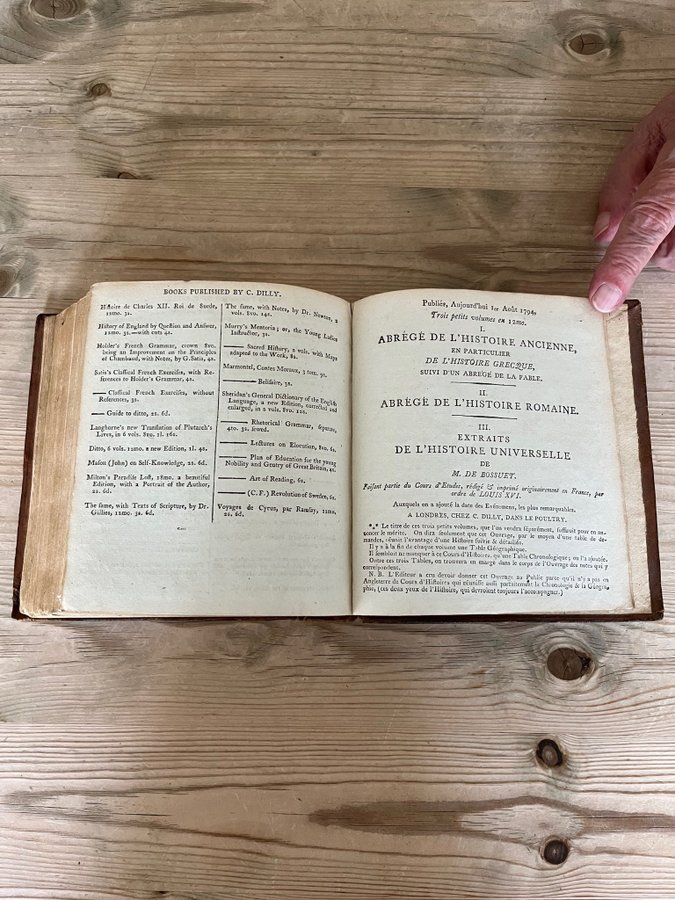 BOOKS PUBLISHED BY C. DILLY.
Histoire de Charles XII. Roi de Suede,
12mo. 3s.
History of England by Question and Answer,
12mo. 3s.—with cuts 4s.
Holder's French Grammar, crown 8vo.
being an Improvement on the Principles
of Chambaud, with Notes, by G. Satis, 4s.
Satis's Classical French Exercises, with Re-
ferences to Holder's Grammar, 4s.
—— Classical French Exercises, without
References, 3s.
—— Guide to ditto, 2s. 6d.
Langhorne's new Translation of Plutarch's
Lives, in 6 vols. 8vo.
Ditto, 6 vols. 12mo. a new Edition, 1l. 4s.
Mason (John) on Self-Knowledge, 2s. 6d.
Milton's Paradise Lost, 18mo. a beautiful
Edition, with a Portrait of the Author,
2s. 6d.
The same, with Texts of Scripture, by Dr.
Gillies, 12mo. 3s. 6d.
The same, with Notes, by Dr. Newton, 2
vols. 8vo. 14s.
Murry's Mentoria; or, the Young Ladies
Instructor, 3s.
—— Sacred History, 2 vols. with Maps
adapted to the Work, 8s.
Marmontel, Contes Moraux, 3 tom. 9s.
—— Belisaire, 3s.
Sheridan's General Dictionary of the English
Language, a new Edition, corrected and
enlarged, in 2 vols. 8vo.
—— Rhetorical Grammar, separate,
4to. 3s. sewed.
—— Lectures on Elocution, 8vo. 6s.
—— Plan of Education for the young
Nobility and Gentry of Great Britain, 4s.
—— Art of Reading, 6s.
—— (C. F.) Revolution of Sweden, 6s.
Voyages de Cyrus, par Ramsay, 12mo.
2s. 6d.
Publiés, Aujourd'hui 1er Août 1794,
Trois petits volumes en 12mo.
I.
ABRÉGÉ DE L'HISTOIRE ANCIENNE,
EN PARTICULIER
DE L'HISTOIRE GRECQUE,
SUIVI D'UN ABRÉGÉ DE LA FABLE.
II.
ABRÉGÉ DE L'HISTOIRE ROMAINE.
III.
EXTRAITS
DE L'HISTOIRE UNIVERSELLE
DE
M. DE BOSSUET.
Faisant partie du Cours d'Etudes, rédigé & imprimé originairement en France, par
ordre de LOUIS XVI.
Auxquels on a ajouté la date des Evénemens, les plus remarquables.
A LONDRES, CHEZ C. DILLY, DANS LE POULTRY.
*,* Le titre de ces trois petits volumes, que l'on vendra séparément, suffisoit pour en an-
noncer le mérite. On dira seulement que cet Ouvrage, par le moyen d'une table de de-
mandes, réunit l'avantage d'une Histoire suivie & détaillée.
Il y a à la fin de chaque volume une Table Géographique.
Il sembloit ne manquer à ce Cours d'Histoires, qu'une Table Chronologique; on l'a ajoutée.
Outre ces trois Tables, on trouvera en marge dans le corps de l'Ouvrage des notes qui y
correspondent.
N. B. L'Editeur a cru devoir donner cet Ouvrage au Public parce qu'il n'y a pas en
Angleterre de Cours d'Histoires qui réunisse aussi parfaitement la Chronologie & la Géogra-
phie, (ces deux yeux de l'Histoire, qui devroient toujours l'accompagner.)